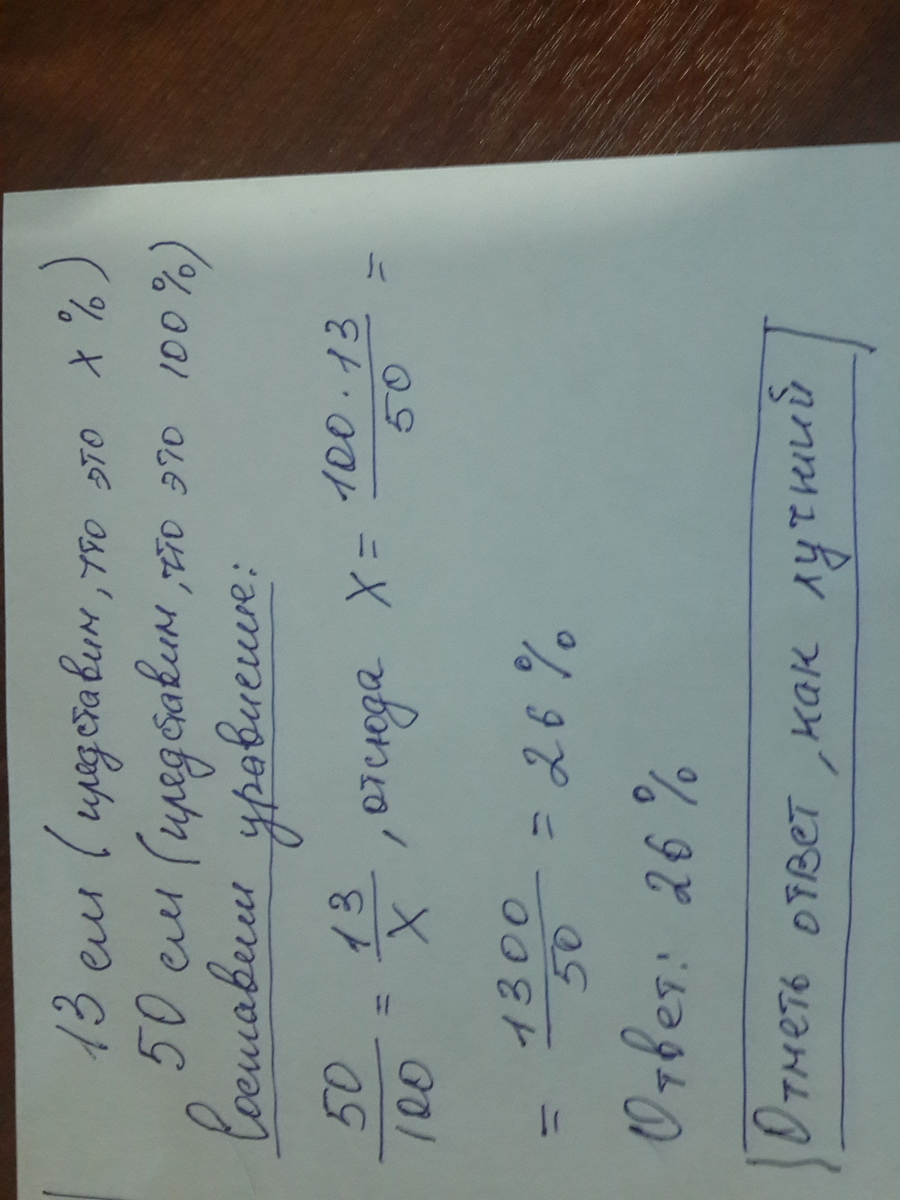 13 см (представим, что это x %)
50 см (представим, что это 100 %)
Составим уравнение:
50/100 = 13/x, отсюда x = 100 · 13/50 =
= 1300/50 = 26 %
Ответ: 26 %
Отметь ответ, как лучший